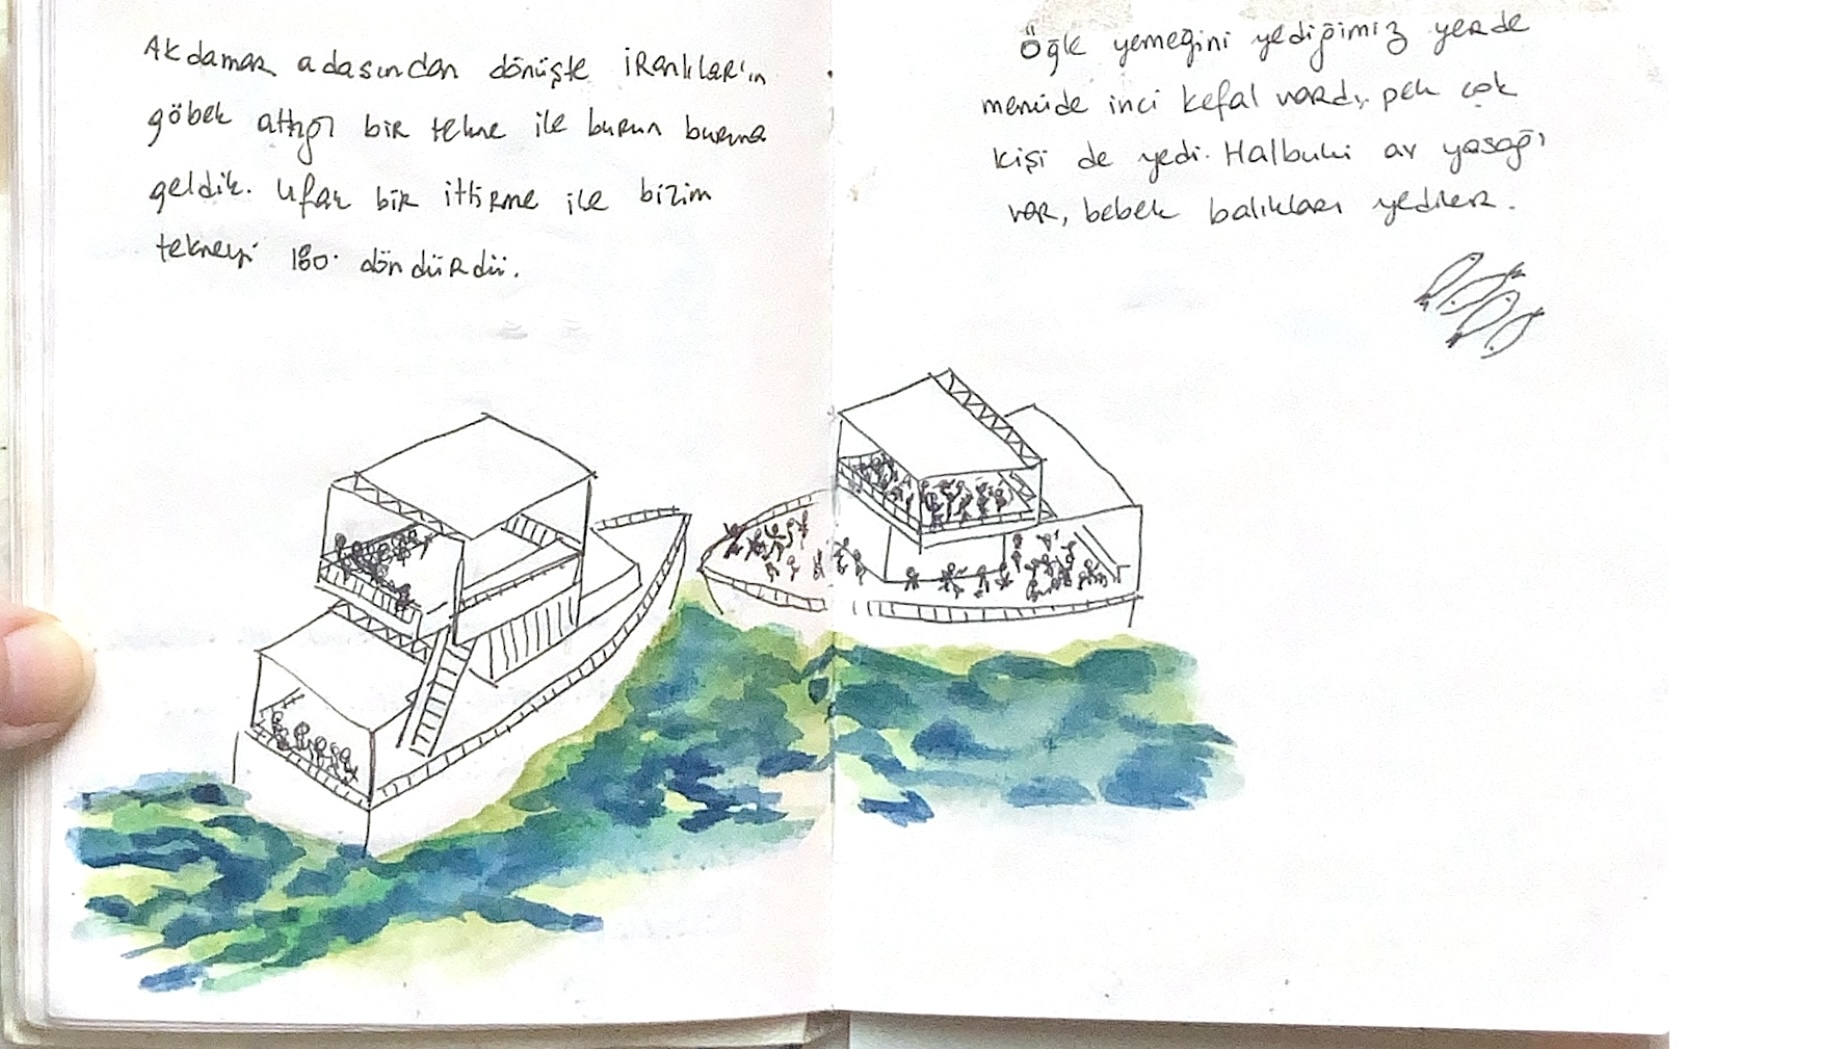 Akdamar adasından dönüşte iranlılar'ın
göbek attığı bir tekne ile burun buruna
geldik. Ufak bir ittirme ile bizim
tekneyi 180° döndürdü.
Öğle yemeğini yediğimiz yerde
menüde inci kefal vardı, pek çok
kişi de yedi. Halbuki av yasağı
var, bebek balıkları yediler.